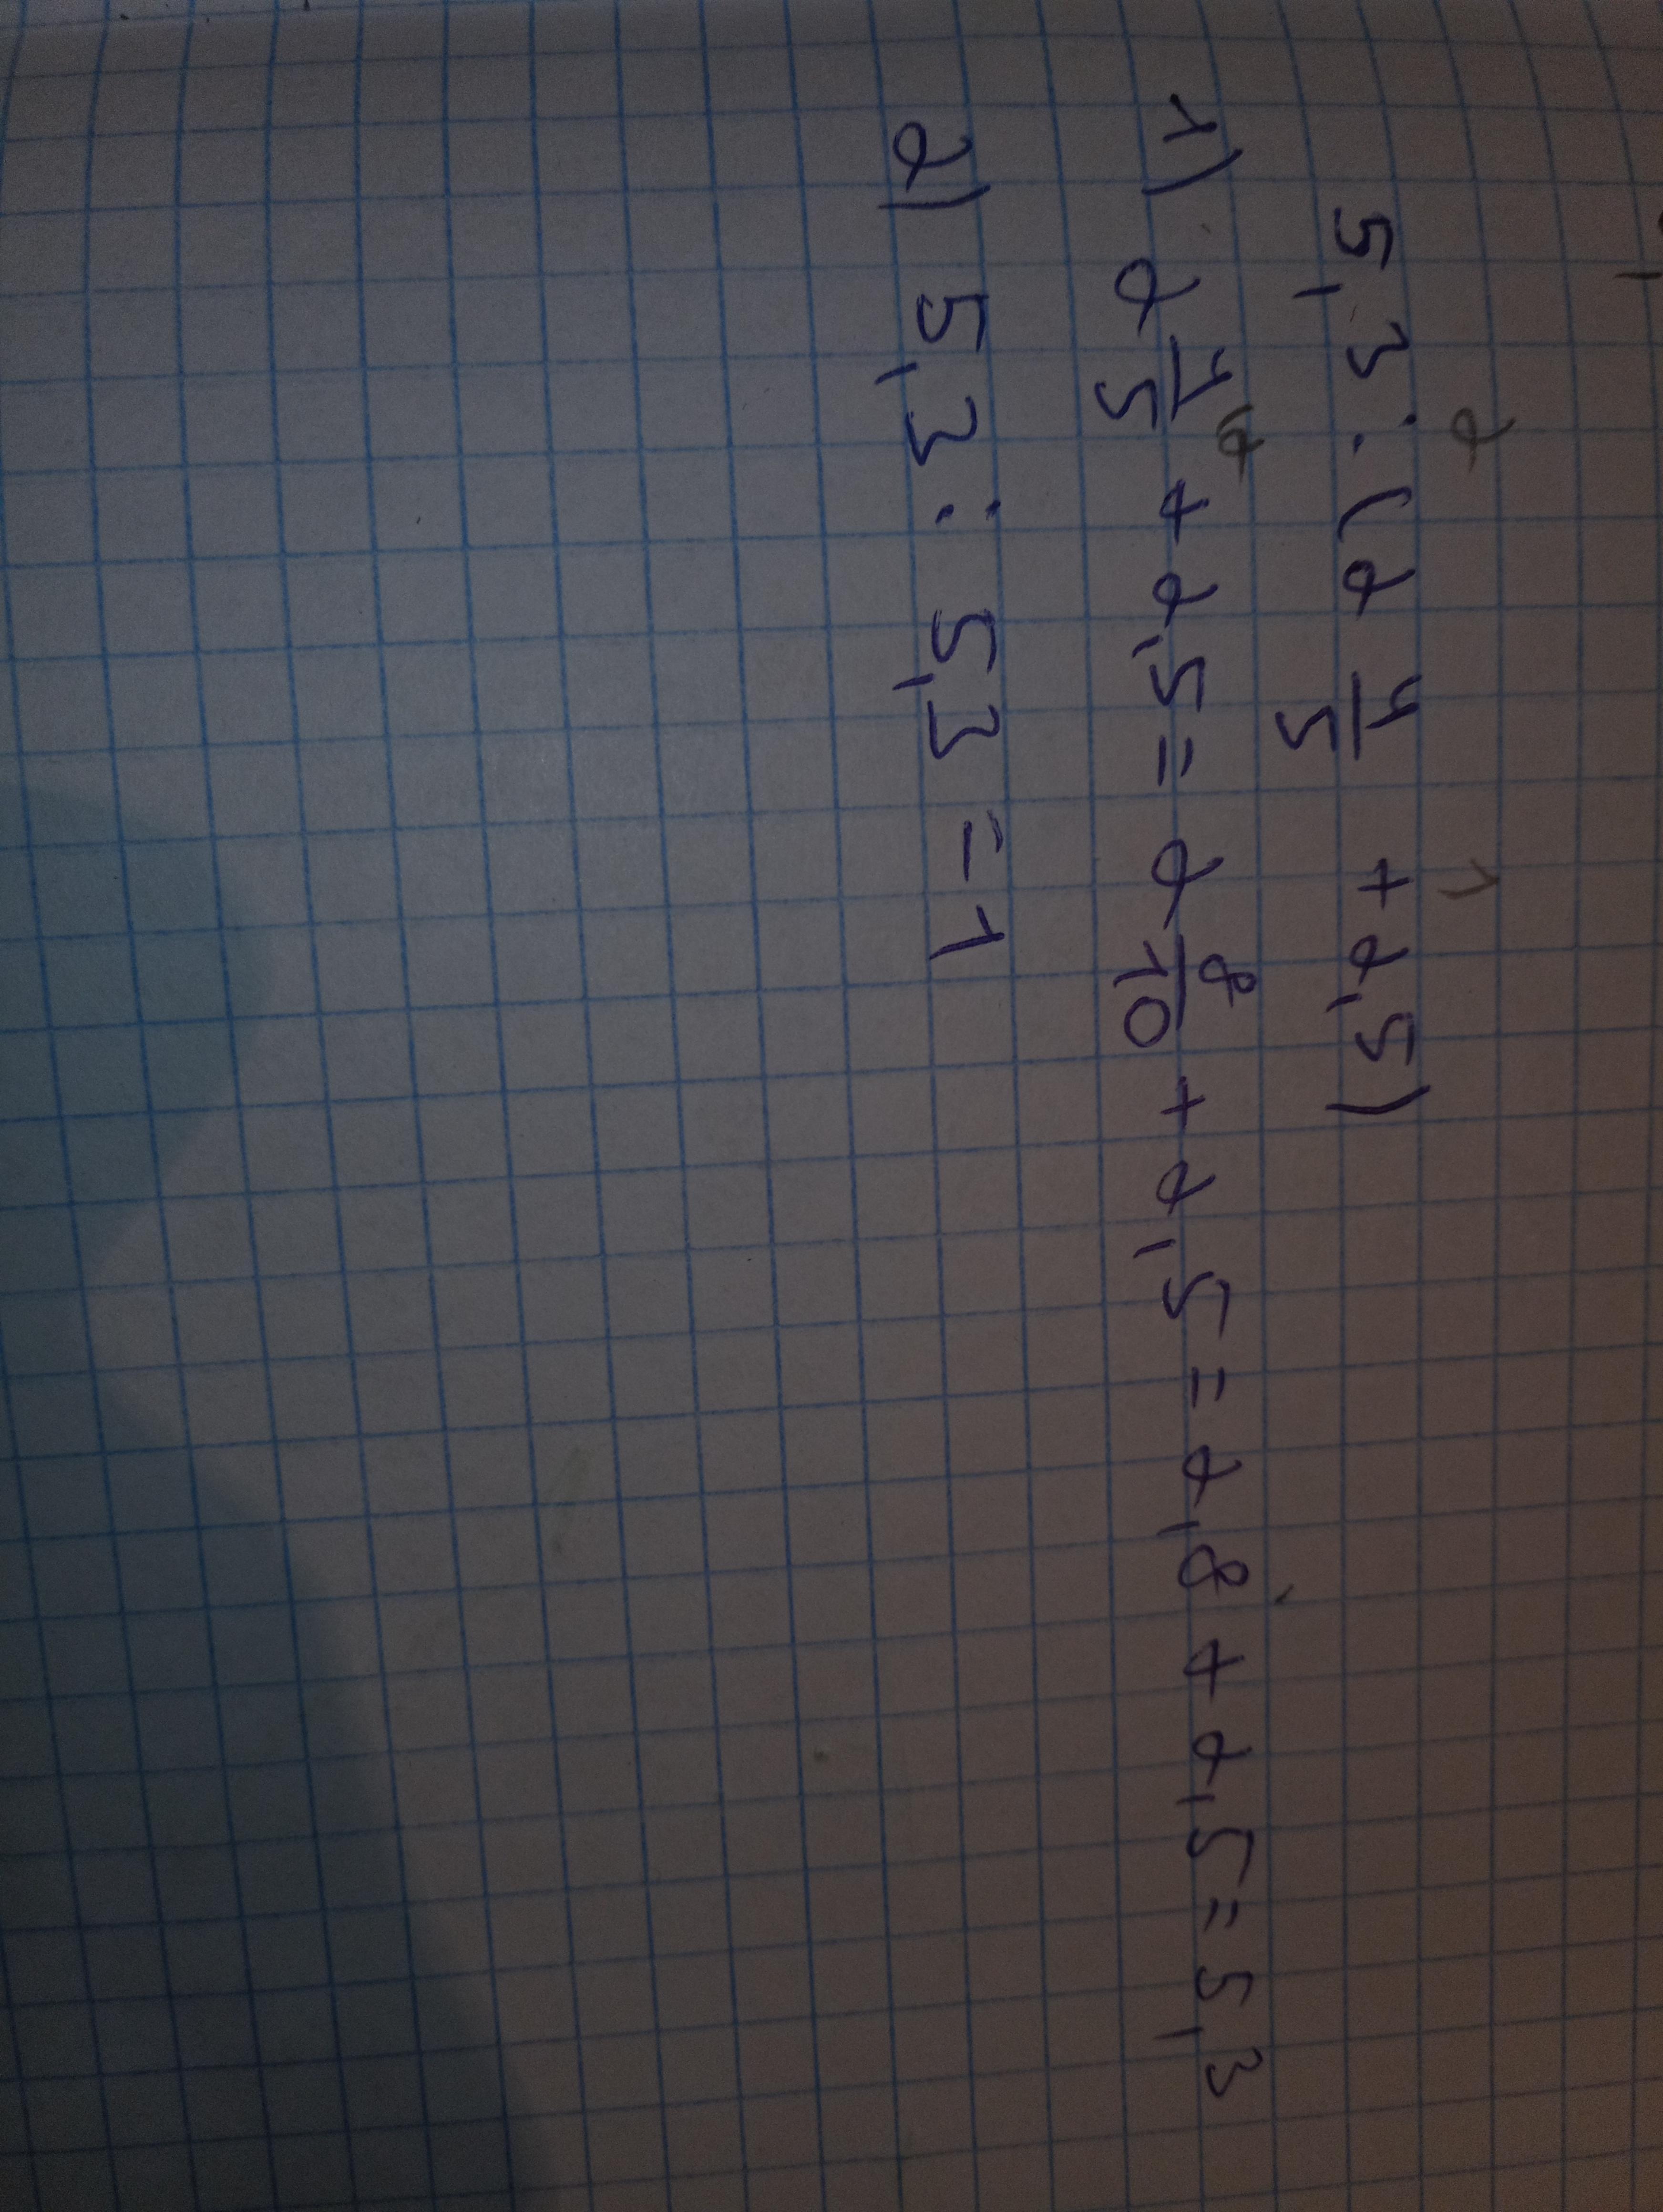 2 1
5,3 : (2 4/5 + 2,5)
1) 2 4/5 \2 + 2,5 = 2 8/10 + 2,5 = 2,8 + 2,5 = 5,3
2) 5,3 : 5,3 = 1